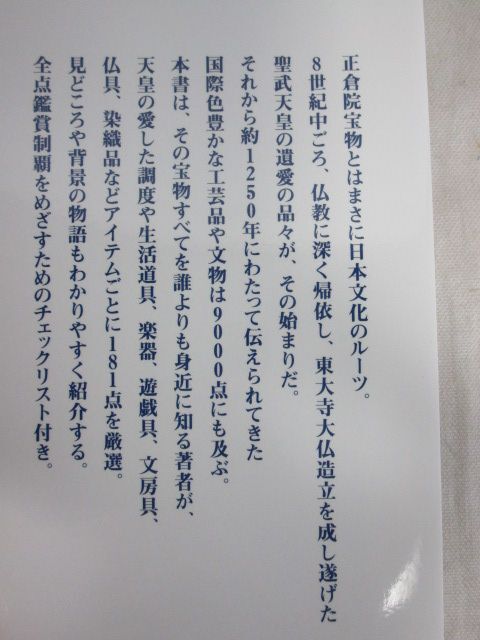 正倉院宝物とはまさに日本文化のルーツ。
8世紀中ごろ、仏教に深く帰依し、東大寺大仏造立を成し遂げた
聖武天皇の遺愛の品々が、その始まりだ。
それから約1250年にわたって伝えられてきた
国際色豊かな工芸品や文物は9000点にも及ぶ。
本書は、その宝物すべてを誰よりも身近に知る著者が、
天皇の愛した調度や生活道具、楽器、遊戯具、文房具、
仏具、染織品などアイテムごとに181点を厳選。
見どころや背景の物語もわかりやすく紹介する。
全点鑑賞制覇をめざすためのチェックリスト付き。